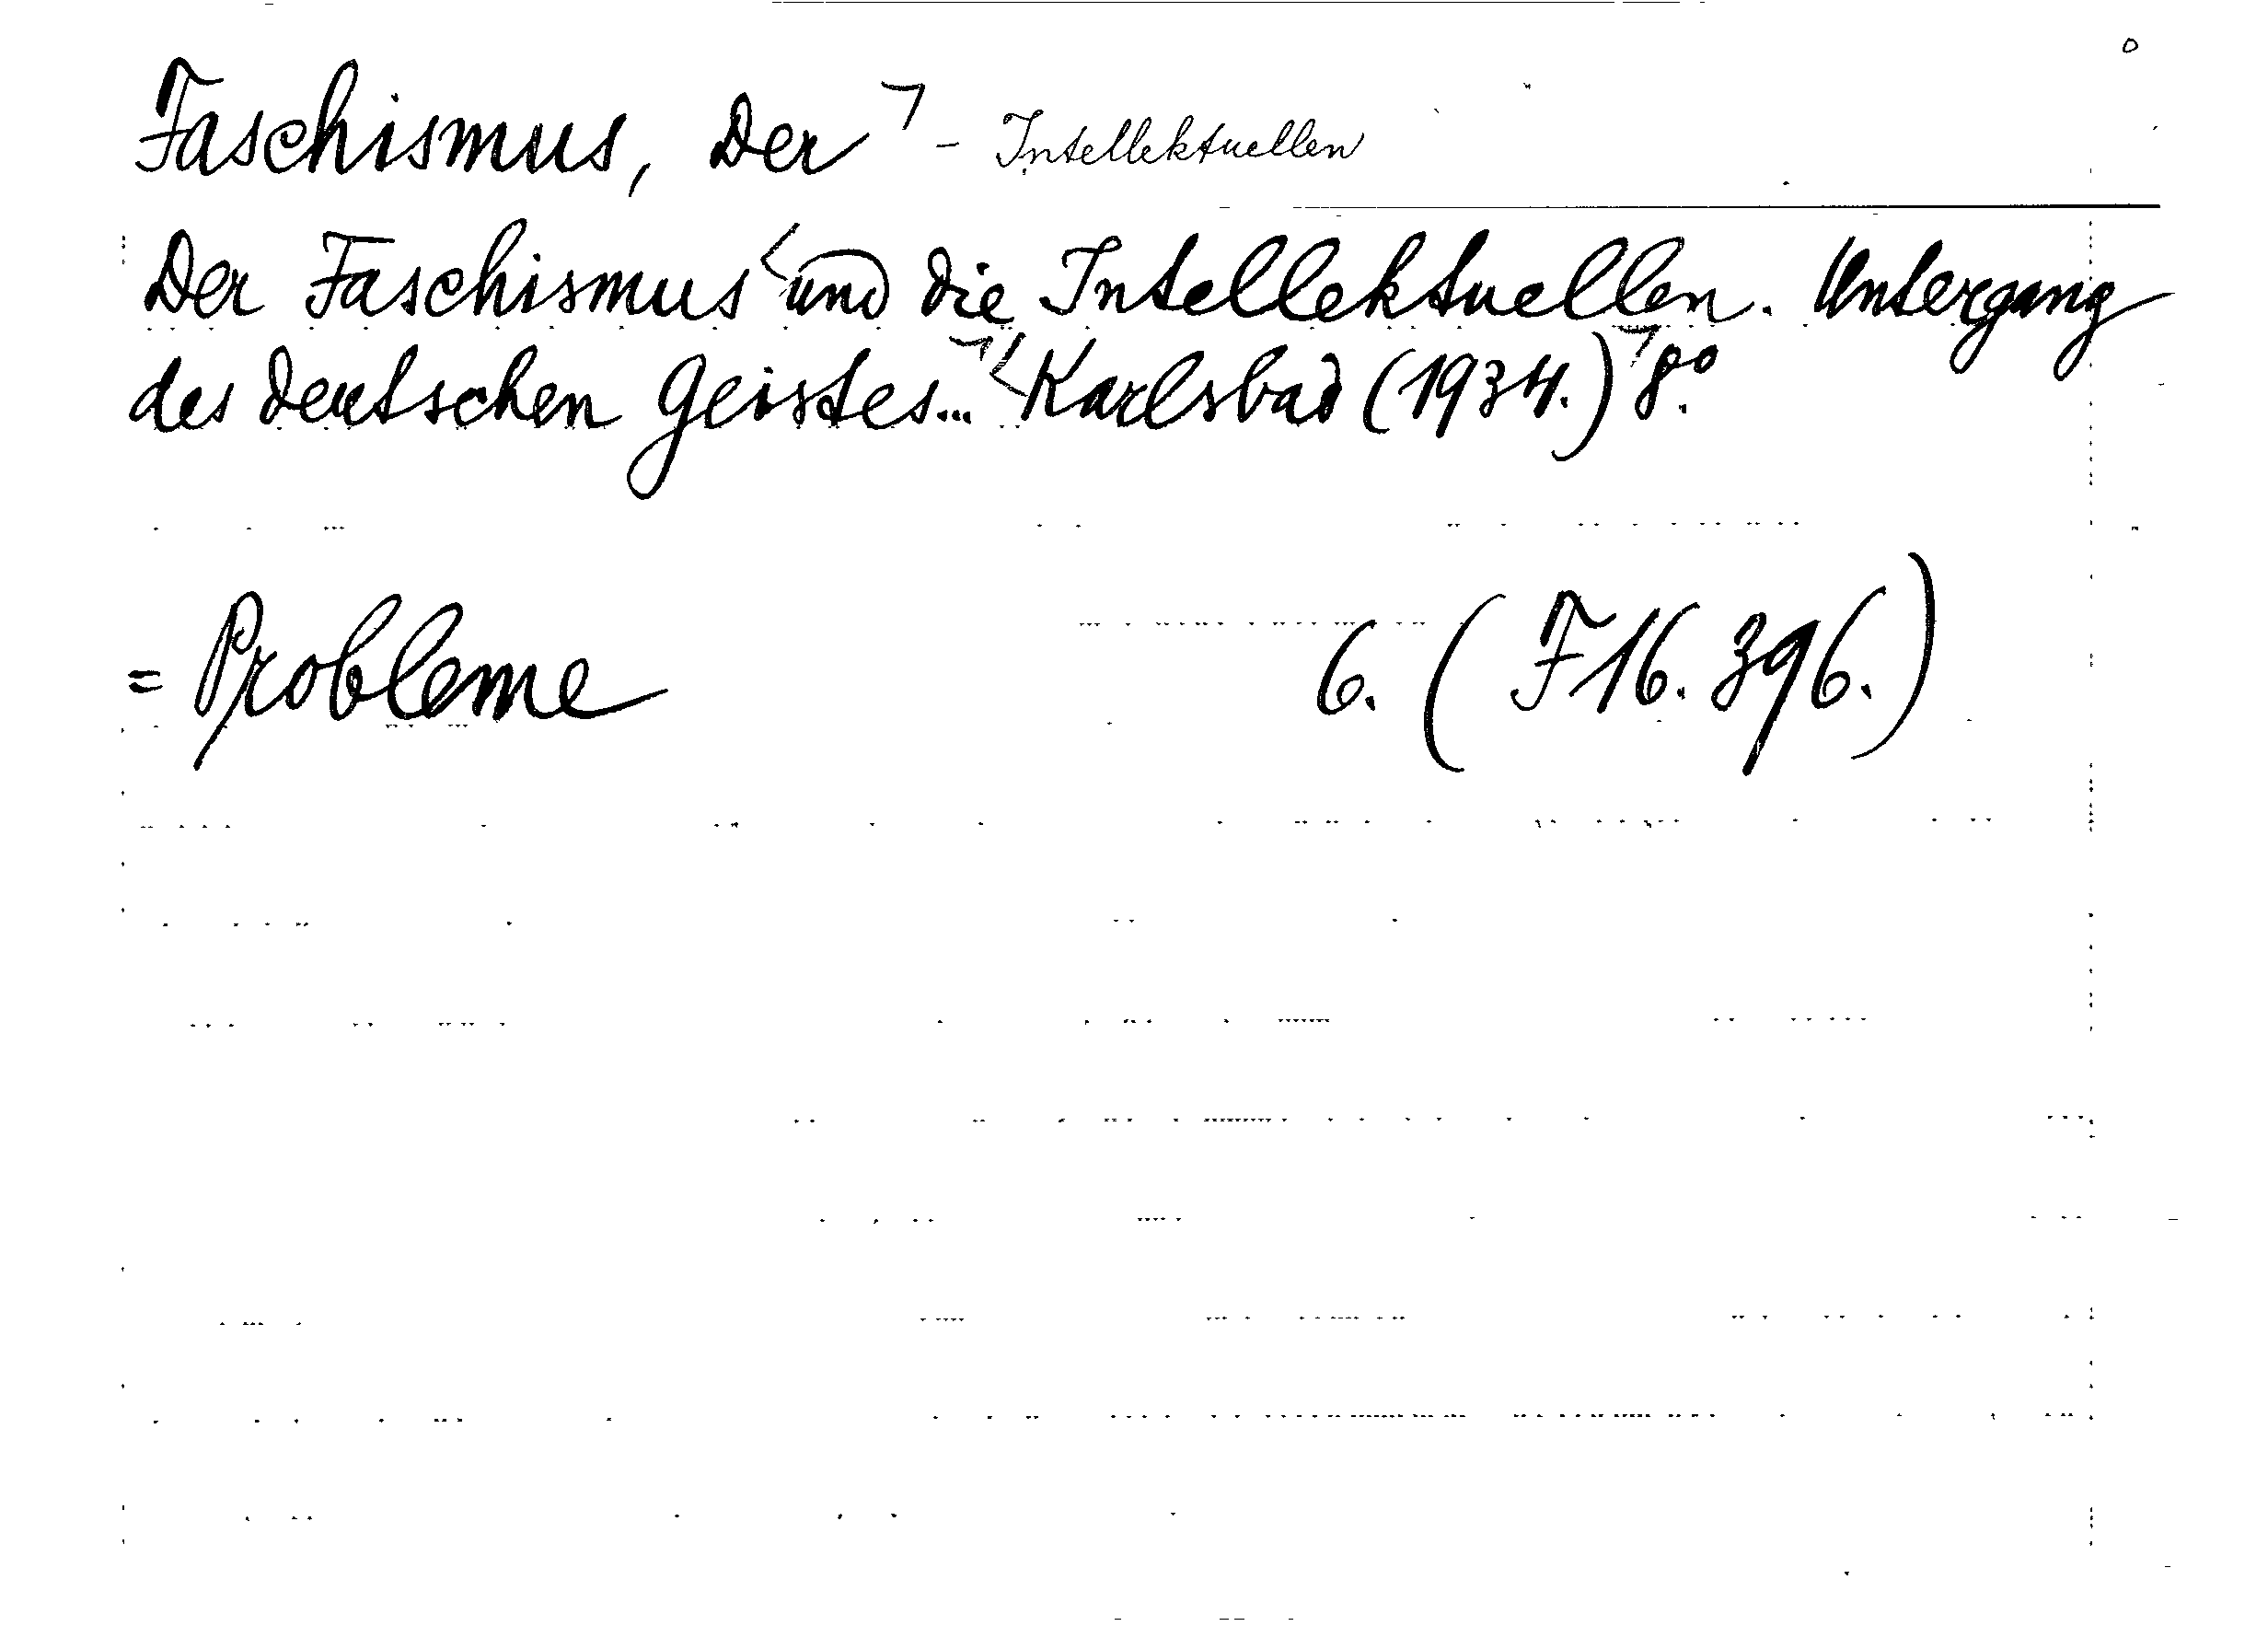 Faschismus, Der - Intellektuellen
Der Faschismus und die Intellektuellen. Untergang
des deutschen Geistes... Karlsbad (1934.) 8°.
= Probleme 6. (F 16. 396.)